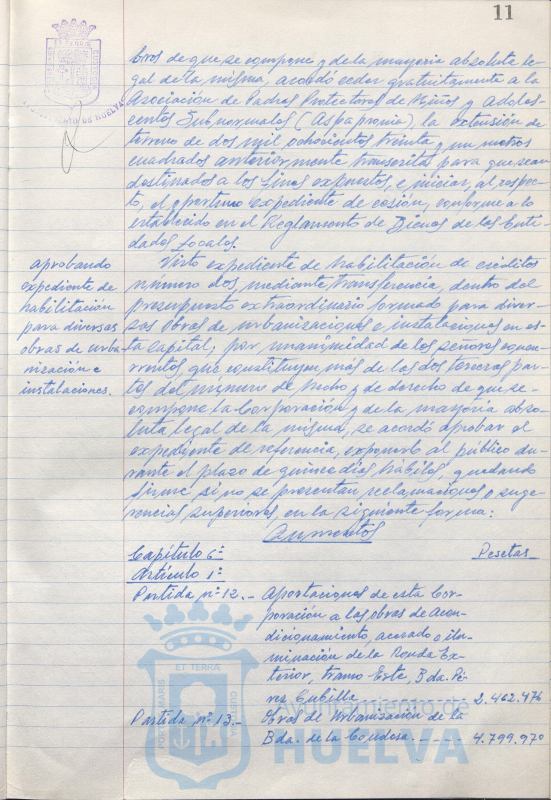 11
bros de que se compone y de la mayoría absoluta le-
gal de la misma, acordó ceder gratuitamente a la
Asociación de Padres Protectores de Niños y Adoles-
centes Subnormales (Aspapronia), la extensión de
terreno de dos mil ochocientos treinta y un metros
cuadrados anteriormente transcritos para que sean
destinados a los fines expuestos, e iniciar, al respec-
to, el oportuno expediente de cesión, conforme a lo
establecido en el Reglamento de Bienes de las Enti-
dades Locales.
aprobando
expediente de
habilitación
para diversas
obras de urba-
nización e
instalaciones.
Visto expediente de habilitación de créditos
número dos, mediante transferencia, dentro del
presupuesto extraordinario formado para diver-
sas obras de urbanizaciones e instalaciones en es-
ta capital, por unanimidad de los señores concu-
rrentes que constituyen más de las dos terceras par-
tes del número de hecho y de derecho de que se
compone la Corporación y de la mayoría abso-
luta legal de la misma, se acordó aprobar el
expediente de referencia, exponerlo al público du-
rante el plazo de quince días hábiles, quedando
firme si no se presentan reclamaciones o suge-
rencias superiores, en la siguiente forma:
Aumentos
Capítulo 6º
Pesetas
Artículo 1º
Partida nº 12.- Aportaciones de esta Cor-
poración a las obras de acon-
dicionamiento, acerado e ilu-
minación de la Ronda Ex-
terior, tramo Este, Bda. Pé-
rez Cubilla 2.462.476
Partida nº 13.- Obras de Urbanización de la
Bda. de la Condesa. - - - - - 4.799.970
ET TERRAE
PORTUS MARIS
CUSTODIA
Ayuntamiento de
HUELVA
AYUNTAMIENTO DE HUELVA